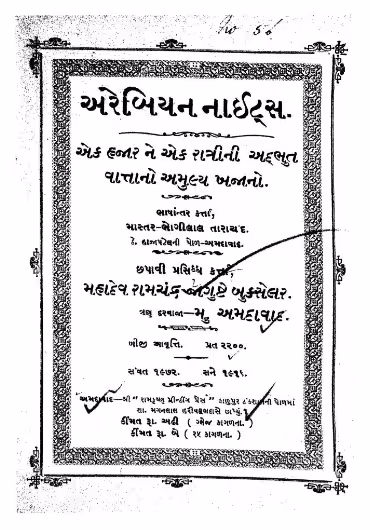 અરેબિયન નાઈટ્સ.
એક હજાર ને એક રાત્રીની અદ્ભુત
વાર્ત્તાનો અમુલ્ય ખજાનો.
ભાષાંતર કર્ત્તા,
માસ્તર-ભોગીલાલ તારાચંદ.
ઠે. હાજાપટેલની પોળ-અમદાવાદ.
છપાવી પ્રસિદ્ધ કર્ત્તા,
મહાદેવ રામચંદ્ર જાગુષ્ટે બુકસેલર.
ત્રણ દરવાજા—મુ. અમદાવાદ.
બીજી આવૃત્તિ. પ્રત ૨૨૦૦.
સંવત ૧૯૭૨. સને ૧૯૧૬.
અમદાવાદ—શ્રી "રામકૃષ્ણ પ્રીન્ટીંગ પ્રેસ" કાળુપુર ટંકશાળની પોળમાં
શા. મગનલાલ હરીવલ્લભદાસે છાપ્યું.
કીંમત રૂા. અઢી ( ગ્લેજ કાગળના. )
કીંમત રૂા. બે ( રફ કાગળના. )